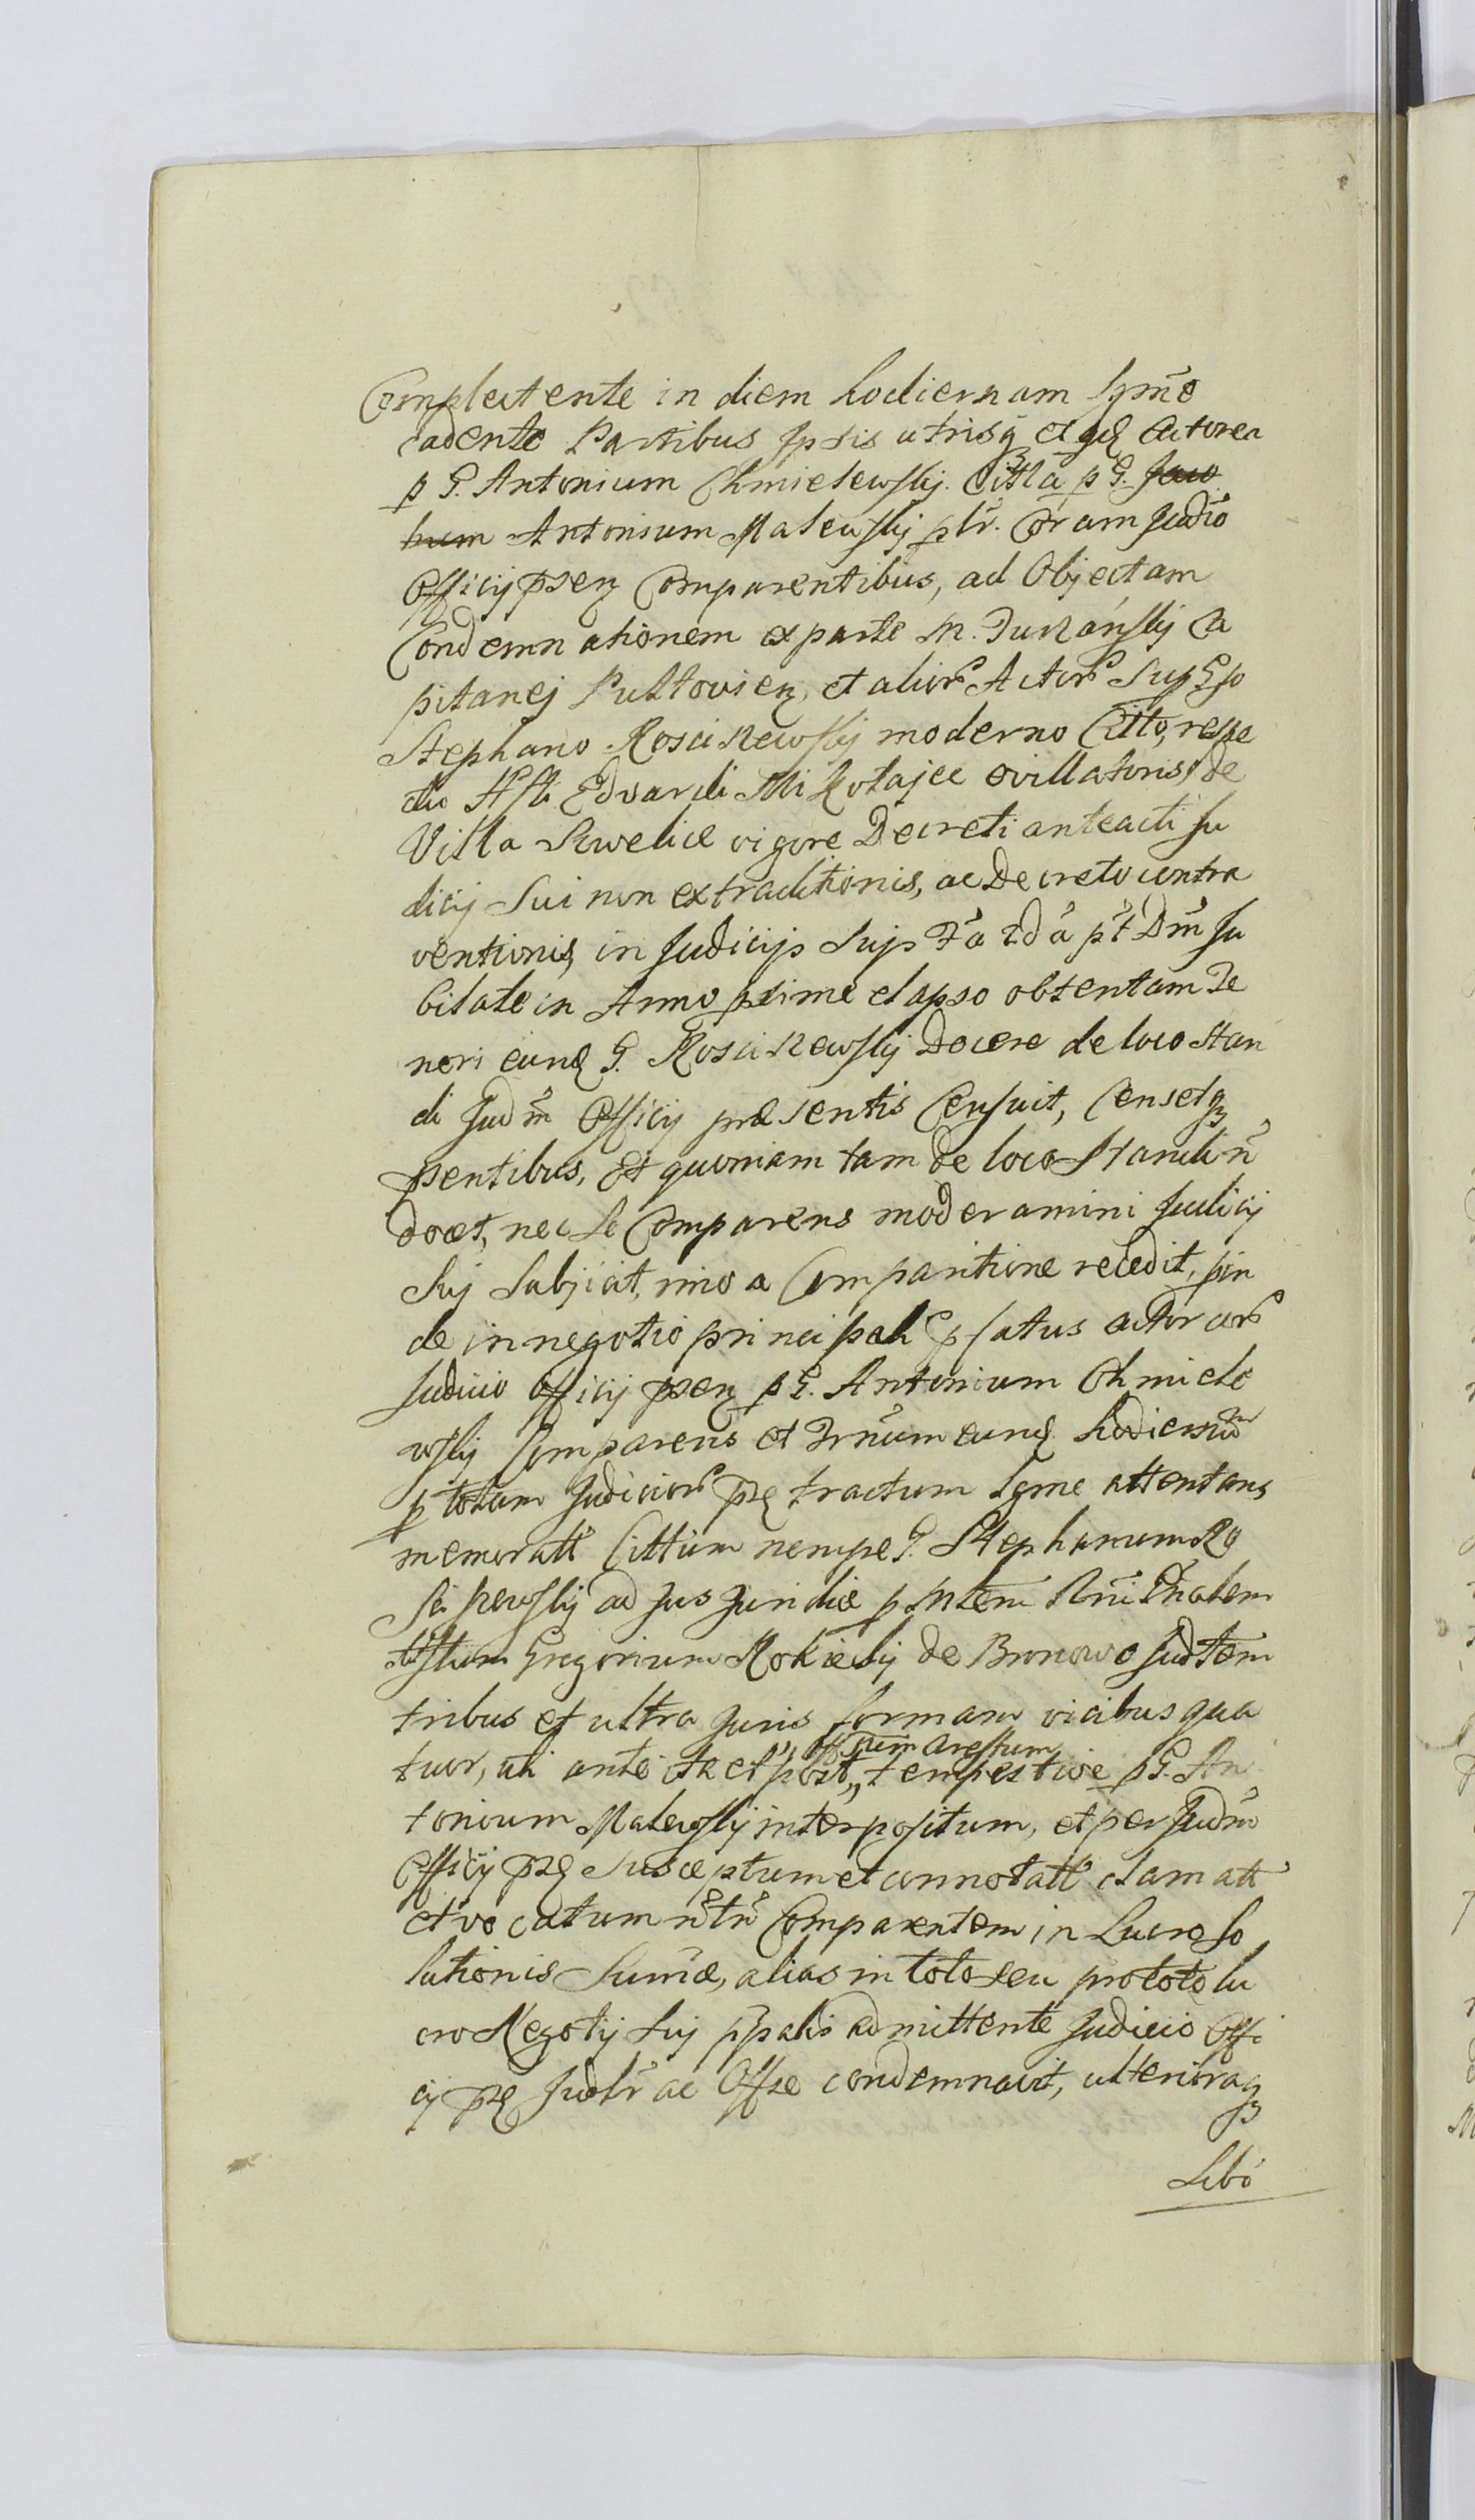 Complectente in diem hodiernam Lgme
cadente Partibus Ipsis utrisq et qd Actorea
p G. Antonium Chmielewskij. Citta p G. Jaco
bum Antonium Malewskij pltr. Coram Judio
Officij psen Comparentibus, ad Objectam
Condemnationem ex parte M. Ca
pitanej Pultovien, et alior Actor Sup Gso
Stephano Rosciszewskij moderno Citto, respe
ctu Hsti Edvardi Mikołajec ovillatoris de
Villa vigore Decreti anteacti Ju
dicij Sui non extraditionis, ac Decreto contra
ventionis, in Judicijs Sujs Fa 2da pt Dm Ju
bilate in Anno pxime elapso obtentam Te
neri eund G. Rosciszewskij Docere de loco Stan
di Judm Officij præsentis Censuit, Censetq
psentibus, Et quoniam tam de loco Standi n
docet, nec se Comparens moderamini Judicij
Sui Subjicit, imo a Comparitione recedit, pin
de in negotio principali pfatus actor cor
Judicio Officij psen p G. Antonium Chmiele
wskij Comparens et Trnum eund hodiernum
p totum Judicior pn tractum Lgme attentans
memoratt Cittum nempe G. Stephanum Ro
sciszewskij ad Jus Juridice p Mtem Rni Gnalem
Hstum Gregorium Mokielskij de Bronowo Judtem
tribus et ultra Juris formam vicibus qua
tuor, uti ante ita et post,, tempestive p G. An
Offosum Arestum
tonium Malewskij interpositum, et per Judm
Officij pn Susceptum et connotatt clamatt
et vocatum ntn Comparentem in Lucro So
lutionis Sumæ, alias in toto seu pro toto lu
cro Negotij Suj ppalis admittente Judicio Offi
cij pn Judlr ac Offse condemnavit, ulterioraq
Libó